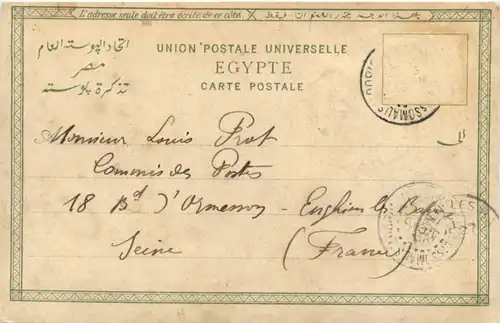 L'adresse seule doit être écrite de ce côté.
اتحاد البوسته العام
مصر
تذكرة بوسته
UNION POSTALE UNIVERSELLE
EGYPTE
CARTE POSTALE
Monsieur Louis Prot
Commis des Postes
18 Bd d'Ormesson - Enghien les Bains
Seine
(France)